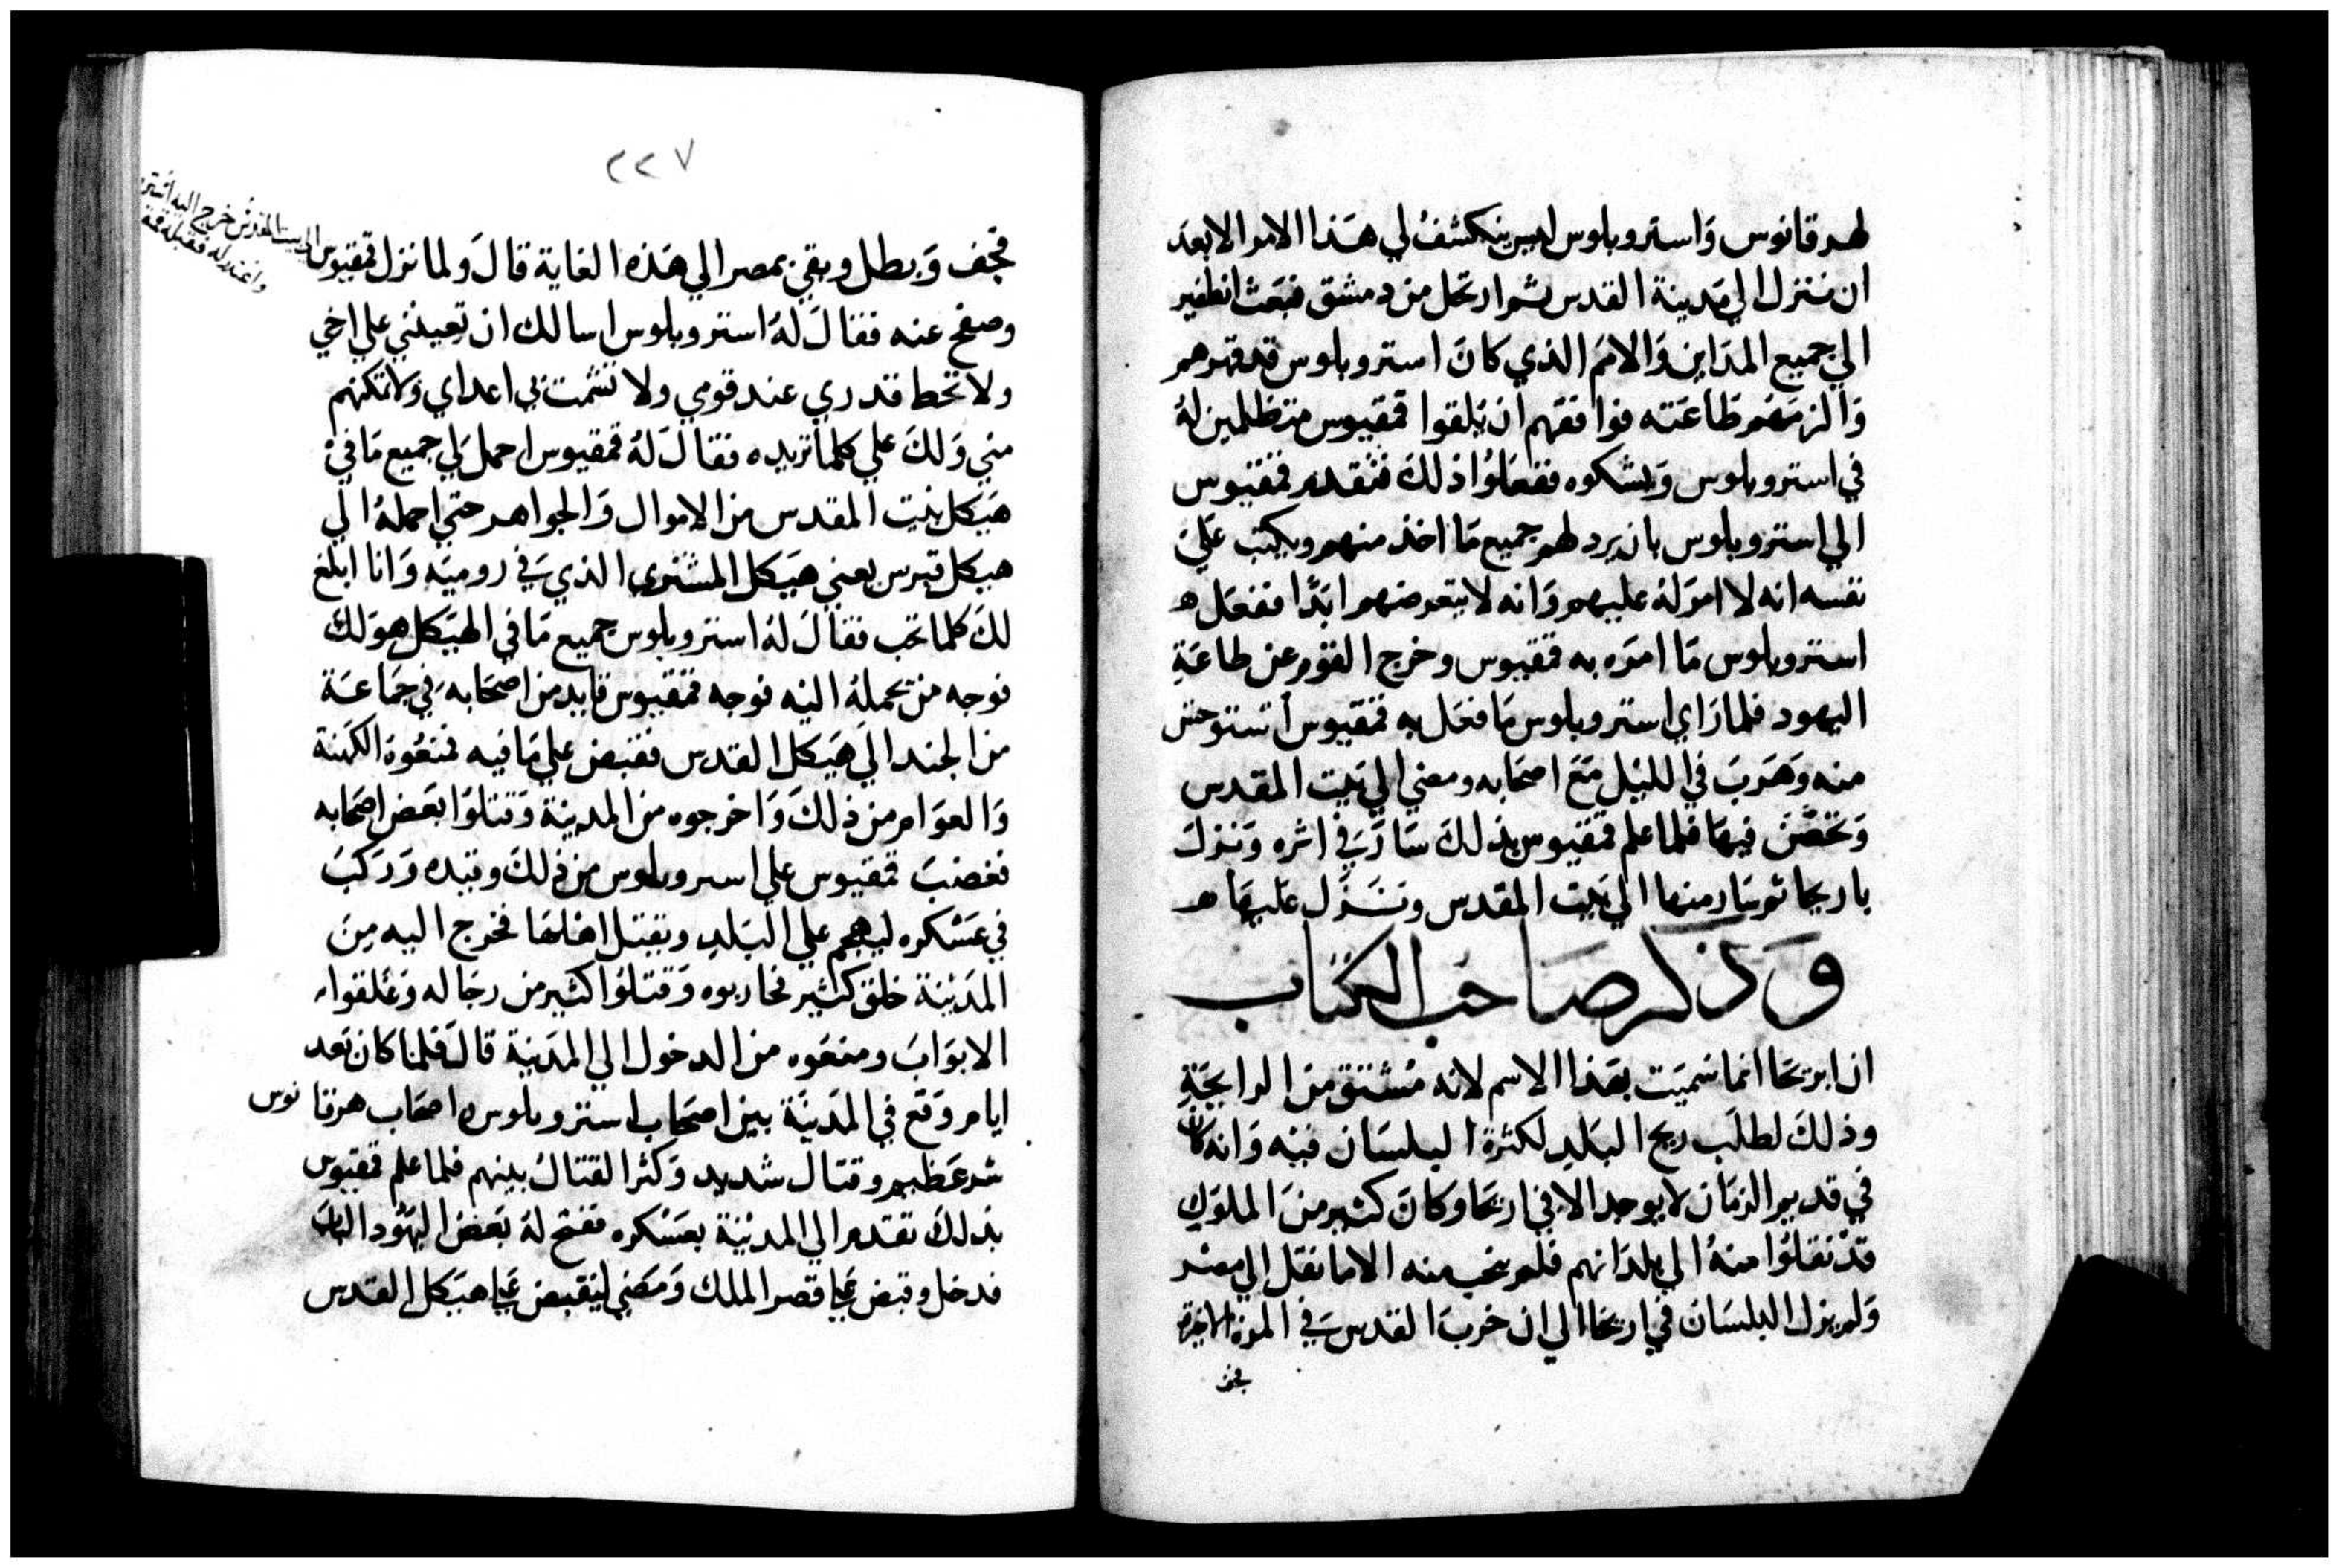 لهرقانوس وَاستروبلوس ليس ينكشف لي هَذا الامر الا بعد
ان ننزل الي مَدينة القدس ثم ارتحل من دمشق فبَعَث انطفير
الي جميع المدَاين وَالامَم الذي كانَ استروبلوس قد قهرهم
وَالزمَهم طاعَته فوافقهم ان يلقوا فمقيوس متظلمين لهُ
في استروبلوس وَيشكوه ففعَلوُا ذلك فتقدم فمقيوس
الي استروبلوس بان يرد لهم جميع مَا اخذ منهم ويكتب عَلي
نفسه انه لا امرَ لهُ عليهم وَانه لا يتعرضهم ابَدًا ففعَل
استروبلوس مَا امرَه به فمقيوس وخرج القوم عن طاعَةِ
اليهود فلما رَاي استروبلوس مَا فعَل به فمقيوس استوحش
منه وَهَربَ في الليْل مَعَ اصحَابه ومضي الي بَيت المقدس
وَتحصَّن فيهَا فلما علم فمقيوس بذلكَ سَارَ في اثره وَنزلَ
باريحا ثم سَار منها الي بَيت المقدس ونَزَل عَليهَا
وَذكر صَاحب الكتاب
ان اريحَا انما سميَت بهَذا الاسم لانه مُشتق من الرايحَةِ
وذلكَ لطلَب ريح البَلدِ لكثرة البلسَان فيْه وَانه كان
في قديم الزمَان لا يوجد الا في اريحَا وكانَ كثير منَ الملوَكِ
قدْ نقلوُا منهُ الي بلدَانهم فلم ينجب منه الا ما نقل الي مصْر
وَلم يزل البلسَان في اريحَا الي ان خربَ القدس في المرة الاخيرة
فجف
٢٢٧
فجف وَبطل وبقي بمصر الي هَذه الغاية قالَ وَلما نزل فمقيوس
الي بيت المقدس خرج اليه استر
واعتذر له فقبله فمق
وصفح عنه فقالَ لهُ استروبلوس اسالك ان تعينني علي اخي
ولا تحط قدري عند قومي ولا تشمت بي اعداي ولا تمكنهم
مني وَلكَ علي كلما تريده فقالَ لهُ فمقيوس احمل لي جميع مَا في
هَيكل بيت المقدس من الاموال وَالجواهر حتي احملهُ الي
هيكل قبرس يعني هَيكل المشتري الذي في روميَه وَانا ابلغ
لكَ كلما تحب فقالَ لهُ استروبلوس جميع مَا في الهَيكل هوَ لكَ
فوجه من يحملهُ اليْه فوجه فمقيوس قايد من اصحَابه في جمَاعَة
من الجند الَي هَيكل القدس فقبض علي مَا فيه فمنعُوهُ الكهَنة
وَالعوَام من ذلكَ وَاخرجوه من المدينة وَقتلوَا بعَض اصحَابه
فغضبَ فمقيوس علي استروبلوس من ذلكَ وقيده وَرَكبَ
في عَسْكره ليهجم علي البَلدِ ويقتل اهْلهَا فخرج اليه مِنَ
المدَيْنة خلق كثير فحاربوه وَقتلوُا كثير من رجَاله وَغلقوا
الابوَابَ ومنعَوه من الدخول الي المدَينة قالَ فلما كان بَعد
ايام وَقعَ في المَدينَة بين اصحَاب استروبلوس واصحَاب هرقانوس
شر عَظيم وقتَال شديد وَكثر القتال بينهم فلما علم فمقيوس
بذلكَ تقدم الي المديْنة بعسْكره ففتح لهُ بَعض اليهُود البابَ
فدخل وقبض علي قصر الملك وَمضي ليَقبض علي هيَكل القدس